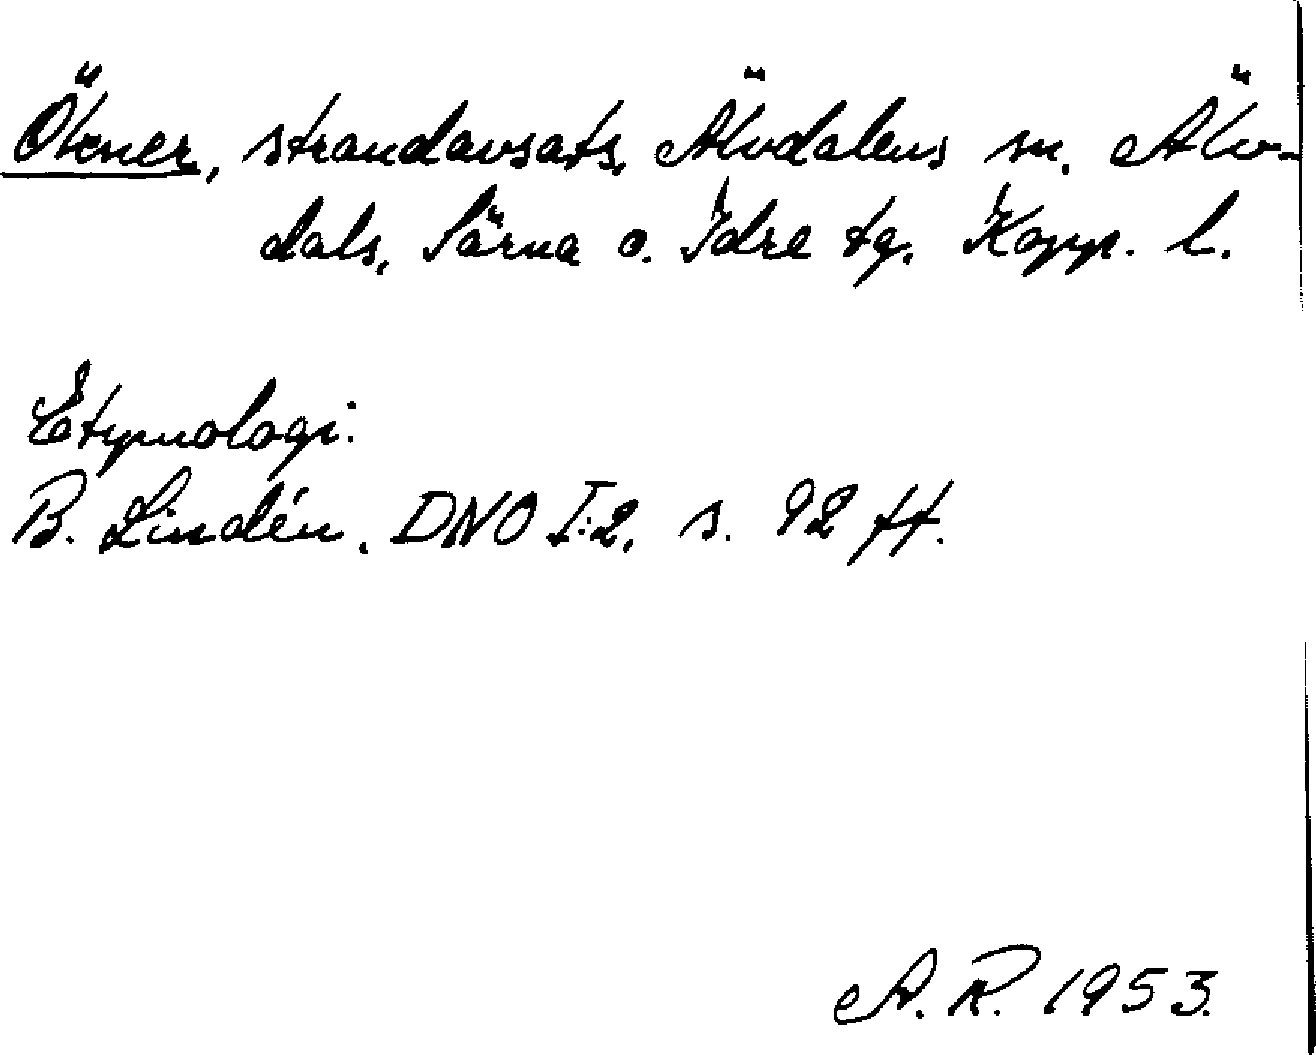 Ökner, strandavsats, Älvdalens sn. Älv-
dals, Särna o. Idre tg. Kopp. l.
Etymologi:
B. Lindén, DNO I:2, s. 92 ff.
A. R. 1953.